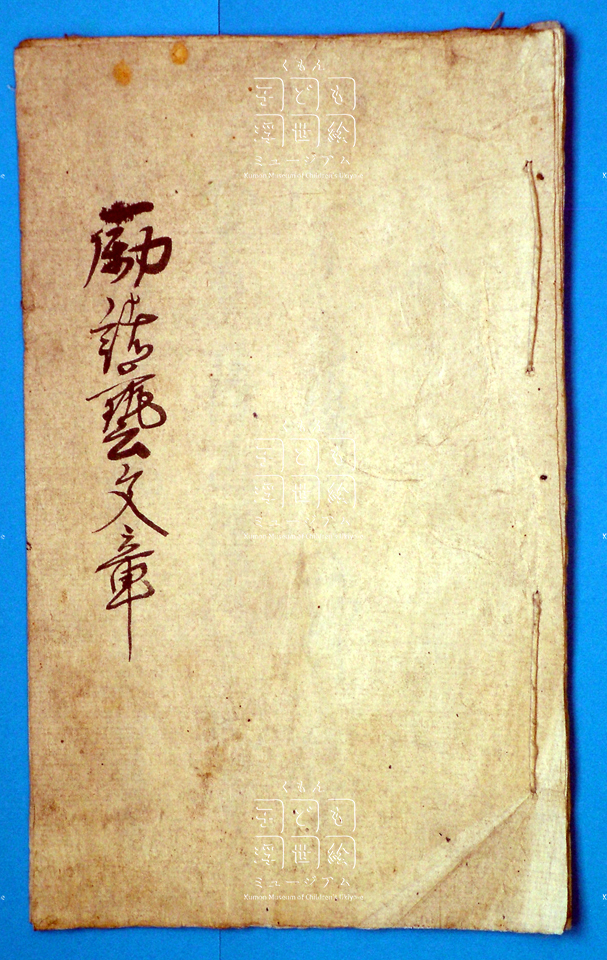 励諸藝文章
くもん
子ども
浮世絵
ミュージアム
Kumon Museum of Children's Ukiyo-e
くもん
子ども
浮世絵
ミュージアム
Kumon Museum of Children's Ukiyo-e
くもん
子ども
浮世絵
ミュージアム
Kumon Museum of Children's Ukiyo-e